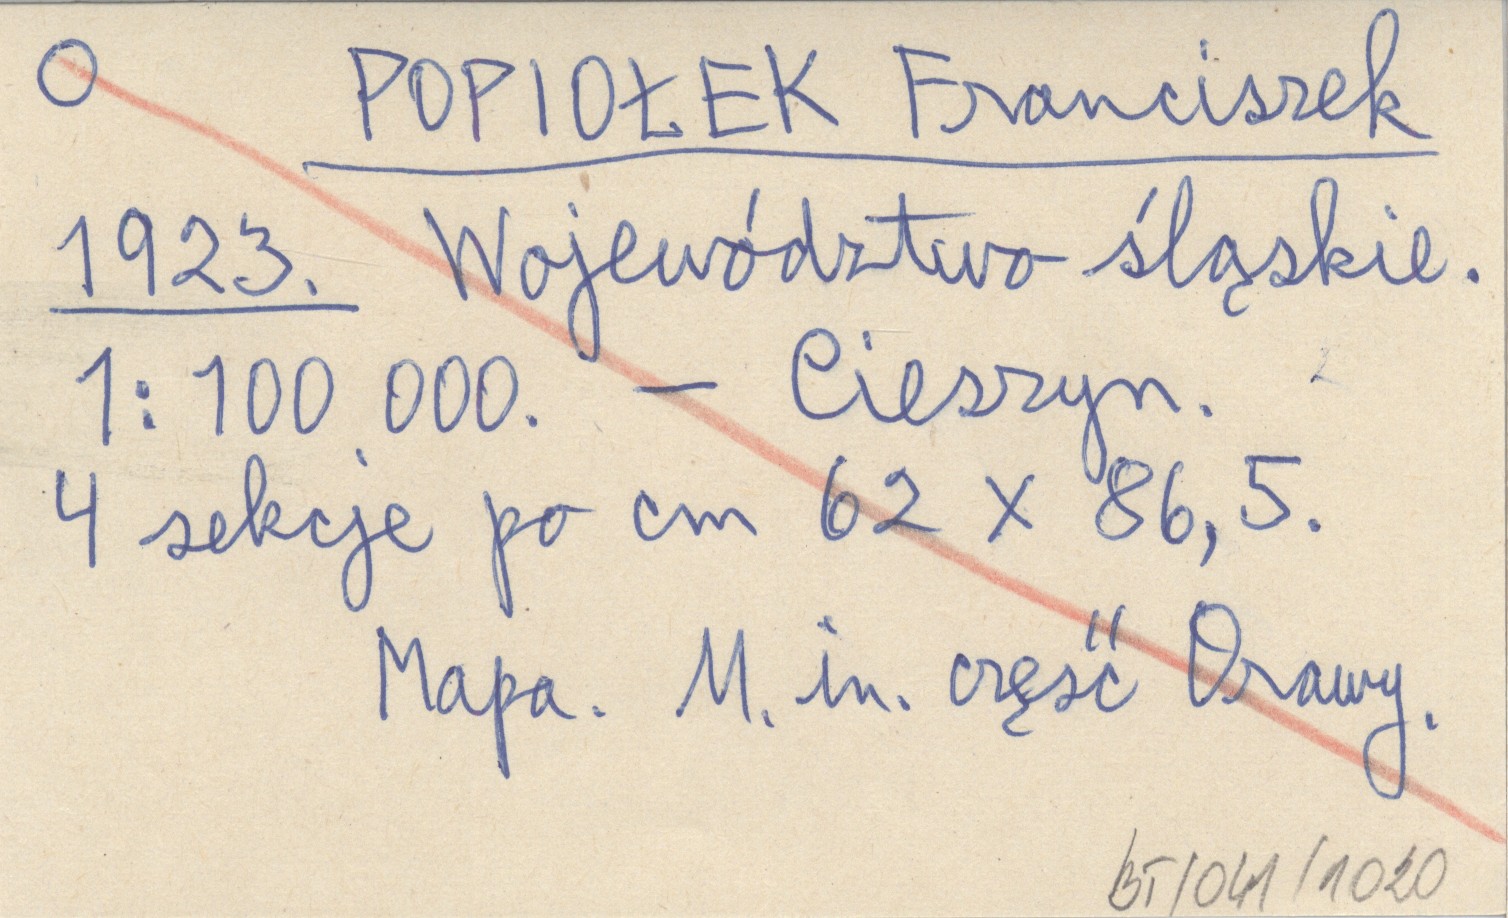 O POPIOŁEK Franciszek
1923. Województwo śląskie.
1: 100 000. — Cieszyn.
4 sekcje po cm 62 x 86,5.
Mapa. M. in. część Orawy.
BT/041/1020